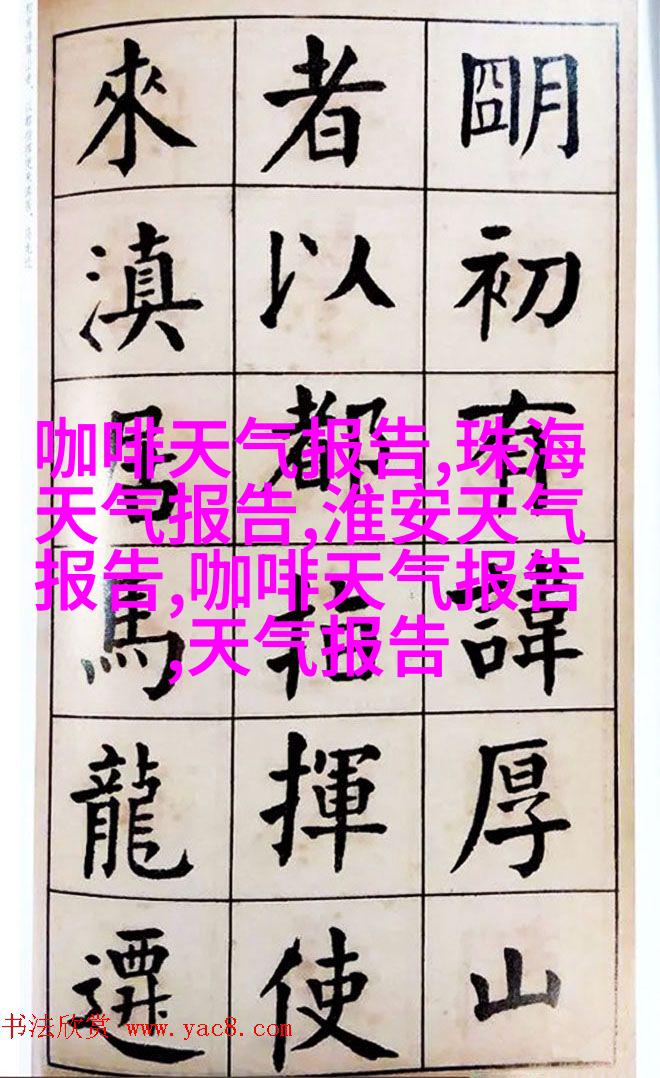 朙初有諱厚山
者以都指揮使
來滇馬龍遷
咖啡天气报告,珠海
天气报告,淮安天气
报告,咖啡天气报告
,天气报告
书法欣赏 www.yac8.com